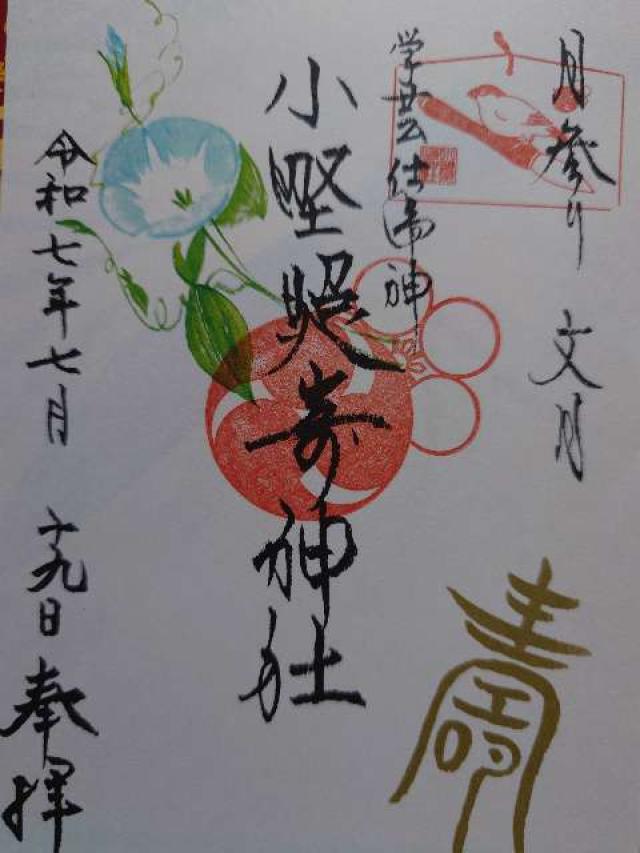 月参り 文月
学芸仕事神
小野照崎神社
令和七年七月 十九日 奉拝
壽